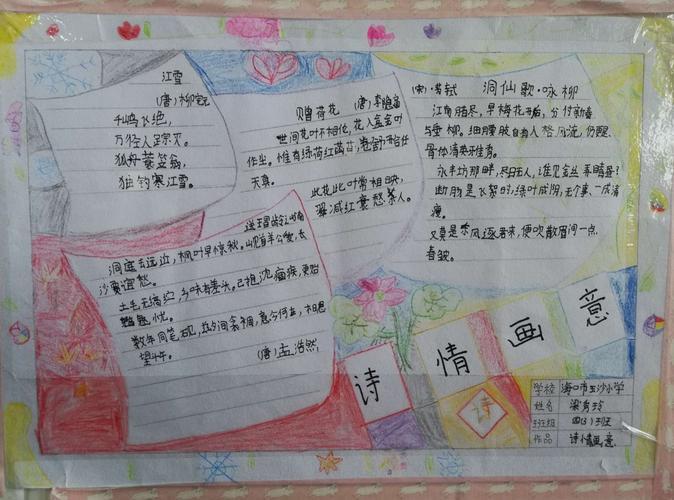 江雪
(唐)柳宗元
千鸟飞绝,
万径人踪灭。
孤舟蓑笠翁,
独钓寒江雪。
赠荷花
(唐)李商隐
世间花叶不相伦,花入金盆叶
作尘。惟有绿荷红菡萏,卷舒开合任
天真。
此花此叶常相映,
减红衰愁杀人。
(宋)·苏轼 洞仙歌·咏柳
江南腊尽,早梅花开后,分付新春
与垂柳。细腰肢自有入格风流,仍
骨体清英雅秀。
永丰坊那畔,尽日无人,谁见金丝弄晴昼?
断肠是飞絮时,绿叶成阴,无个事、一成消
瘦。
又莫是东风逐君来,便吹散眉间一点
春皱。
送王昌龄之岭南
洞庭去远近,枫叶早惊秋。山见首羊公爱,长
沙贾谊愁。
土毛无缟纻,乡味有差头。已抱沈痼疾,更贻
忧。
数年同笔砚,兹夕间衾裯,意今何在,
望斗牛。
(唐)孟浩然
诗情画意
诗
学校 海口市玉沙小学
姓名 梁秀玲
班级 四(3)班
作品 诗情画意